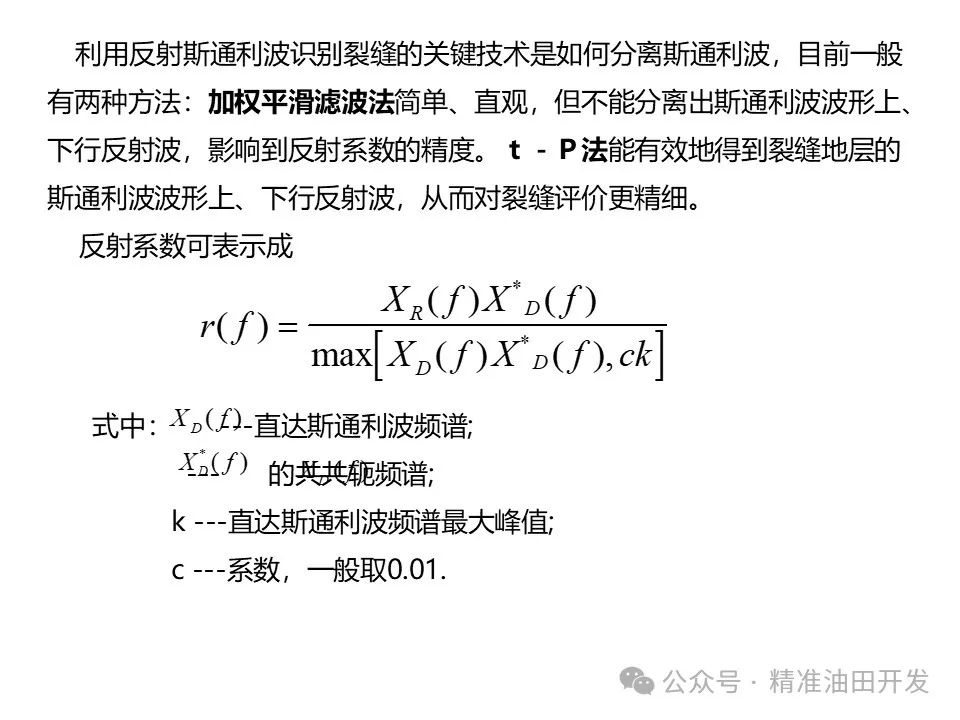 利用反射斯通利波识别裂缝的关键技术是如何分离斯通利波，目前一般
有两种方法：加权平滑滤波法简单、直观，但不能分离出斯通利波波形上、
下行反射波，影响到反射系数的精度。 t - P法能有效地得到裂缝地层的
斯通利波波形上、下行反射波，从而对裂缝评价更精细。
反射系数可表示成
r(f) = X_R(f)X^*_D(f) / max[X_D(f)X^*_D(f), ck]
式中： X_D(f)---直达斯通利波频谱;
X^*_D(f) --- 的共共轭频谱;
k ---直达斯通利波频谱最大峰值;
c ---系数，一般取0.01.
公众号 · 精准油田开发